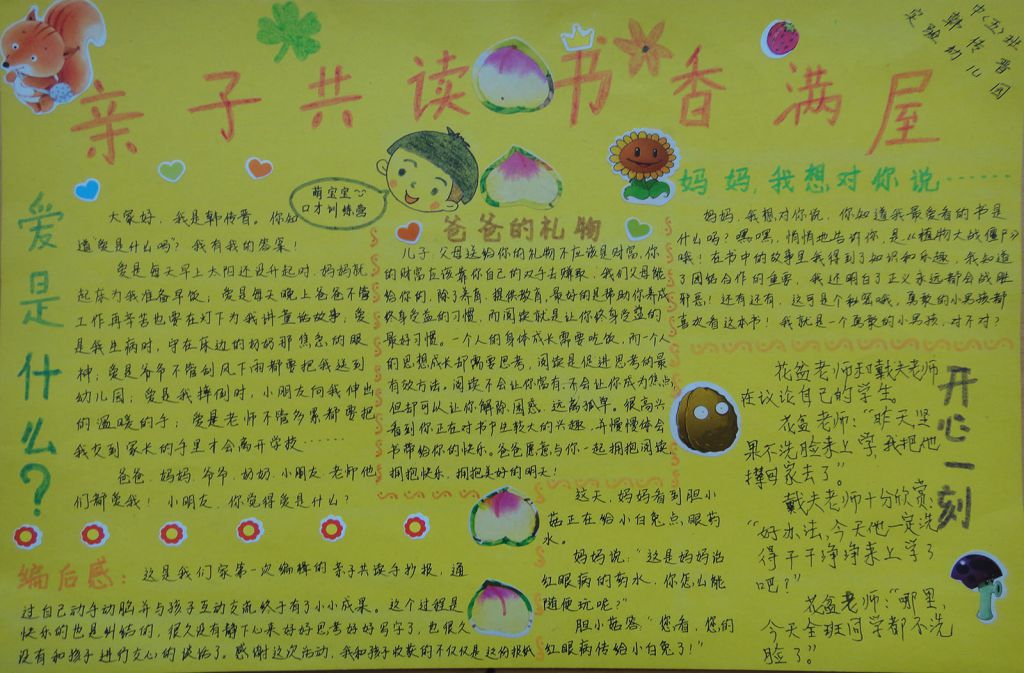 亲子共读书香满屋
中(五)班
韩传晋
实验幼儿园
萌宝宝
口才训练营
爱是什么?
大家好,我是韩传晋。你知
道爱是什么吗?我有我的答案!
爱是每天早上太阳还没升起时,妈妈就
起床为我准备早饭;爱是每天晚上爸爸不管
工作再辛苦也要在灯下为我讲童话故事;爱
是我生病时,守在床边的奶奶那焦急的眼
神;爱是爷爷不管刮风下雨都要把我送到
幼儿园;爱是我摔倒时,小朋友向我伸出
的温暖的手;爱是老师不管多累都要把
我交到家长的手里才会离开学校……
爸爸、妈妈、爷爷、奶奶、小朋友、老师他
们都爱我!小朋友,你觉得爱是什么?
爸爸的礼物
儿子,父母送给你的礼物不应该是财富,你
的财富应该靠你自己的双手去赚取,我们父母能
给你的,除了养育、提供教育,最好的是帮助你养成
终身受益的习惯,而阅读就是让你终身受益的
最好习惯。一个人的身体成长需要吃饭,而一个人
的思想成长却需要思考,阅读是促进思考的最
有效方法,阅读不会让你富有,不会让你成为焦点,
但却可以让你解除困惑、远离孤单。很高兴
看到你正在对书产生较大的兴趣,并慢慢体会
书带给你的快乐。爸爸愿意与你一起拥抱阅读,
拥抱快乐,拥抱美好的明天!
妈妈,我想对你说……
妈妈,我想对你说,你知道我最爱看的书是
什么吗?嘿嘿,悄悄地告诉你,是《植物大战僵尸》
哦!在书中的故事里我得到了知识和乐趣,我知道
了团结合作的重要,我还明白了正义永远都会战胜
邪恶!还有还有,这可是个秘密哦,勇敢的小男孩都
喜欢看这本书!我就是一个勇敢的小男孩,对不对?
开心一刻
花盆老师和戴夫老师
在议论自己的学生。
花盆老师:“昨天坚
果不洗脸来上学,我把他
撵回家去了”。
戴夫老师十分欣赏:
“好办法,今天他一定洗
得干干净净来上学了
吧?”
花盆老师:“哪里,
今天全班同学都不洗
脸了。”
这天,妈妈看到胆小
菇正在给小白兔点眼药
水。
妈妈说:“这是妈妈治
红眼病的药水,你怎么能
随便玩呢?”
胆小菇答:“您看,您的
红眼病传给小白兔了!”
编后感:这是我们家第一次编辑的亲子共读手抄报,通
过自己动手动脑并与孩子互动交流终于有了小小成果。这个过程是
快乐的也是纠结的,很久没有静下心来好好思考好好写字了,也很久
没有和孩子进行交心的谈话了。感谢这次活动,我和孩子收获的不仅仅是这份报纸